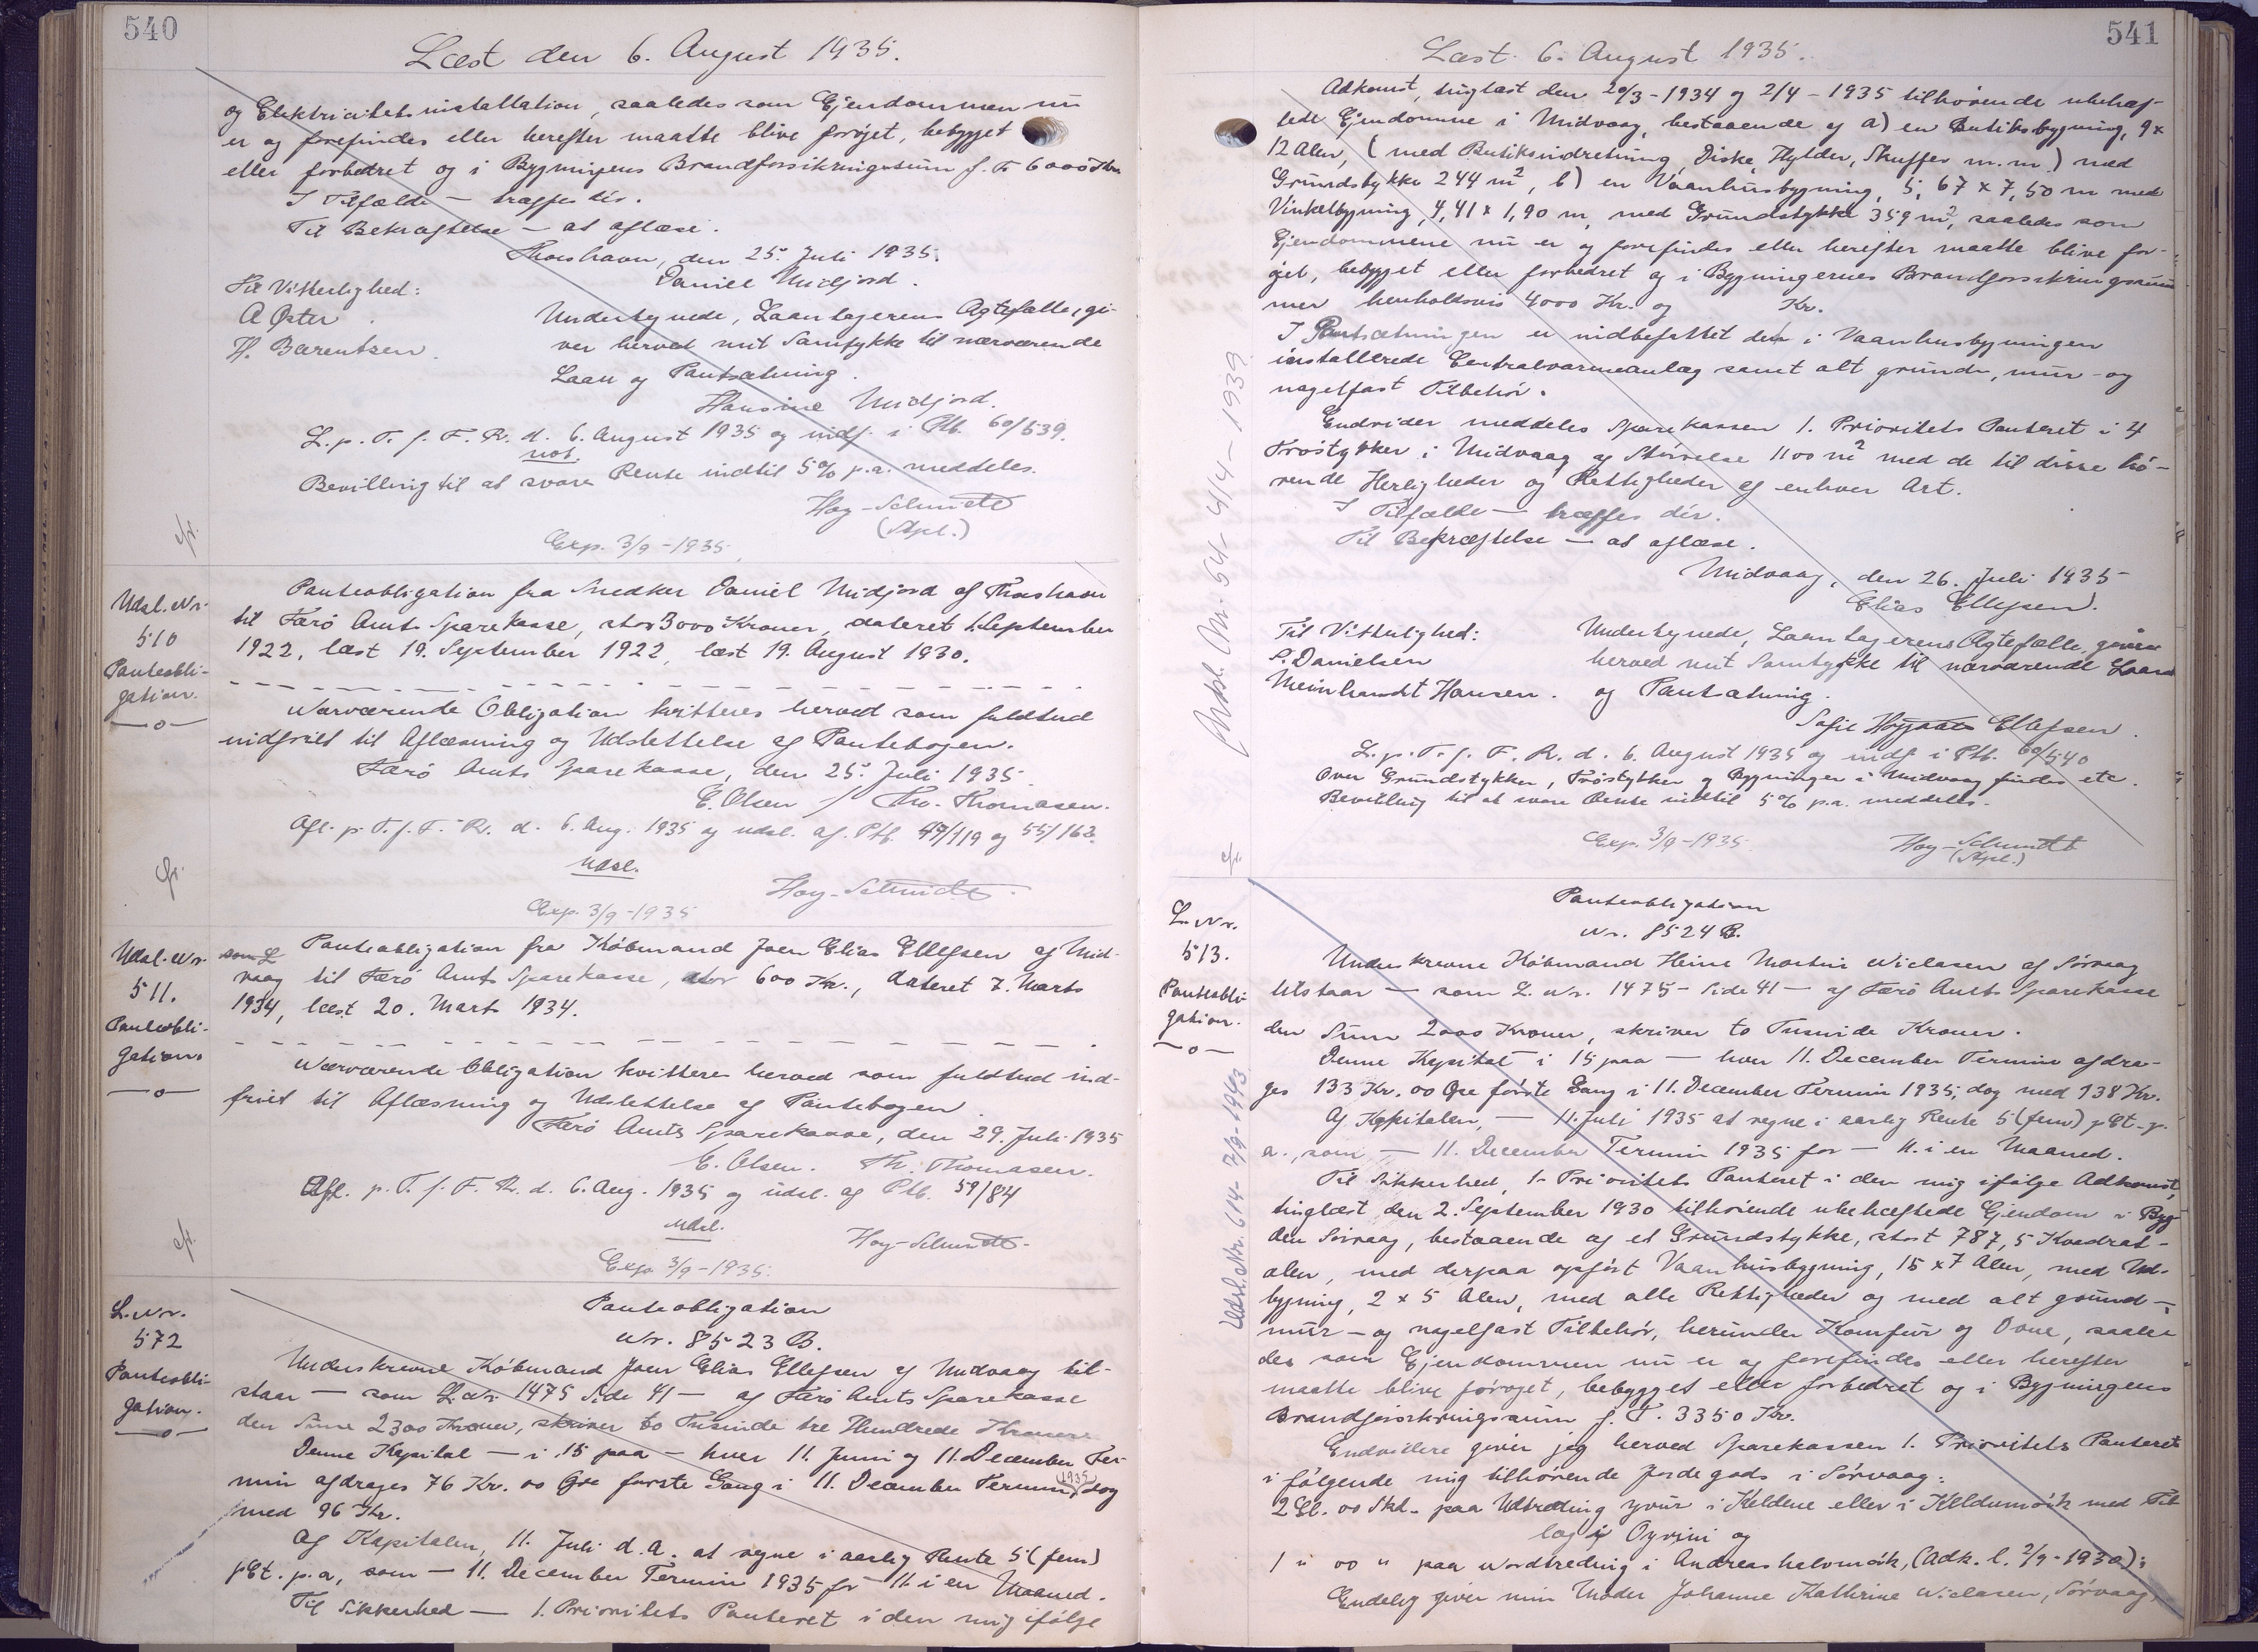 540
Læst den 6. August 1935.
og Elektricitetsinstallation, saaledes som Ejendommen nu
er og forefindes eller herefter maatte blive forøjet, bebygget
eller forbedret og i Bygningens Brandforsikringssum f. T. 6000 Kr.
I Tilfælde — træffes dér.
Til Bekræftelse — at aflæse.
Thorshavn, den 25. Juli 1935.
Daniel Midjord.
Til Vitterlighed:
A Øster
H. Barentsen.
Undertegnede, Laantagerens Ægtefælle, gi-
ver herved mit Samtykke til nærværende
Laan og Pantsætning.
Hansine Midjord.
L. p. T. f. F. R. d. 6. August 1935 og indf. i Ptb. 60/539.
not.
Bevilling til at svare Rente indtil 5% p.a. meddeles.
Hoy-Schmidt
(Spl.)
Exp. 3/9-1935.
cfr.
Udsl. Nr.
510
Panteobli-
gation.
Panteobligation fra Snedker Daniel Midjord af Thorshavn
til Færø Amts Sparekasse, stor 3000 Kroner, dateret 1. September
1922, læst 19. September 1922, læst 19. August 1930.
Nærværende Obligation kvitteres herved som fuldtud
indfriet til Aflæsning og Udslettelse af Pantebogen.
Færø Amts Sparekasse, den 25. Juli 1935.
E. Olsen / Th. Thomasen.
Afl. p. T. f. F. R. d. 6. Aug. 1935 og udsl. af. Ptb. 49/119 og 55/162.
Udsl.
Hoy-Schmidt.
Exp. 3/9-1935
cfr.
Udsl. Nr.
511.
Panteobli-
gation.
Panteobligation fra Købmand Joen Elias Ellefsen af Mid-
vaag til Færø Amts Sparekasse, stor 600 Kr., dateret 7. Marts
1934, læst 20. Marts 1934.
Nærværende Obligation kvitteres herved som fuldtud ind-
friet til Aflæsning og Udslettelse af Pantebogen.
Færø Amts Sparekasse, den 29. Juli 1935
E. Olsen. Th. Thomasen.
Afl. p. T. f. F. R. d. 6. Aug. 1935 og udsl. af Ptb. 59/84
Udsl.
Hoy-Schmidt-
Exp. 3/9-1935.
cfr.
L. Nr.
572
Panteobli-
gation.
Panteobligation
Nr. 8523 B.
Underskrevne Købmand Joen Elias Ellefsen af Midvaag til-
staar — som L. Nr. 1475 Side 41 — af Færø Amts Sparekasse
den Sum 2300 Kroner, skriver to Tusinde tre Hundrede Kroner
Denne Kapital — i 15 paa — hver 11. Juni og 11. December Ter-
min afdrages 76 Kr. 00 Øre første Gang i 11. December Termin 1935, dog
med 96 Kr.
Af Kapitalen, 11. Juli d.a. at regne i aarlig Rente 5 (fem)
pCt. p.a, som — 11. December Termin 1935 for 11. i en Maaned.
Til Sikkerhed — 1. Prioritets Panteret i den mig ifølge
541
Læst. 6. August 1935.
Adkomst, tinglæst den 20/3-1934 og 2/4-1935 tilhørende ubehæf-
tede Ejendomme i Midvaag, bestaaende af a) en Butiksbygning, 9 x
12 Alen, (med Butiksindretning, Diske, Hylder, Skuffer m.m.) med
Grundstykke 244 m², b) en Vaanhusbygning, 5,67 x 7,50 m med
Vinkelbygning, 4,41 x 1,90 m, med Grundstykke 359 m², saaledes som
Ejendommene nu er og forefindes eller herefter maatte blive for-
øjet, bebygget eller forbedret og i Bygningernes Brandforsikringssum-
mer henholdsvis 4000 Kr. og Kr.
I Pantsætningen er indbefattet den i Vaanhusbygningen
installerede Centralvarmeanlæg samt alt grund-, mur- og
nagelfast Tilbehør.
Endvider meddeles Sparekassen 1. Prioritets Panteret i 4
Trøstykker i Midvaag af Størrelse 1100 m² med de til disse hø-
rende Herligheder og Rettigheder af enhver Art.
I Tilfælde — træffes dér.
Til Bekræftelse — at aflæse.
Midvaag, den 26. Juli 1935-
Elias Ellefsen.
Til Vitterlighed:
S. Danielsen
Meinhardt Hansen.
Undertegnede, Laantagerens Ægtefælle, giver
herved mit Samtykke til nærværende Laan
og Pantsætning.
Sofie Ellefsen.
L. p. T. f. F. R. d. 6. August 1935 og indf. i Ptb. 60/540
Over Grundstykker, Trøstykker og Bygninger i Midvaag findes etc.
Bevilling til at svare Rente indtil 5% p.a. meddeles.
Exp. 3/9-1935.
Hoy-Schmidt
(Spl.)
cfr.
Nr. 54- 4/4-1939
L. Nr.
513.
Panteobli-
gation.
Udsl. Nr. 614- 7/9-1943
Panteobligation
Nr. 8524 B.
Underskrevne Købmand Heine Martin Niclasen af Sørvaag
tilstaar — som L. Nr. 1475- Side 41 — af Færø Amts Sparekasse
den Sum 2000 Kroner, skriver to Tusinde Kroner.
Denne Kapital i 15 paa — hver 11. December Termin afdra-
ges 133 Kr. 00 Øre første Gang i 11. December Termin 1935, dog med 138 Kr.
Af Kapitalen, — 11. Juli 1935 at regne i aarlig Rente 5 (fem) pCt. p.
a., som — 11. December Termin 1935 for — 11. i en Maaned.
Til Sikkerhed, 1. Prioritets Panteret i den mig ifølge Adkomst,
tinglæst den 2. September 1930 tilhørende ubehæftede Ejendom i Byg-
den Sørvaag, bestaaende af et Grundstykke, stort 787,5 Kvadrat-
alen, med derpaa opført Vaanhusbygning, 15 x 7 Alen, med Ud-
bygning, 2 x 5 Alen, med alle Rettigheder og med alt grund-,
mur- og nagelfast Tilbehør, herunder Komfur og Ovne, saale-
des som Ejendommen nu er og forefindes eller herefter
maatte blive forøget, bebygget eller forbedret og i Bygningens
Brandforsikringssum f. T. 3350 Kr.
Endvidere giver jeg herved Sparekassen 1. Prioritets Panteret
i følgende mig tilhørende Jordegods i Sørvaag:
2 Gl. 00 Skl. paa Udtræding yvur i Keldene eller i Keldumørk med Til-
lag i Oyrini og
1 " 00 " paa Nordtreding i Andreashelvmørk, (Adk. l. 2/9-1930);
Endelig giver min Moder Johanne Kathrine Niclasen, Sørvaag,